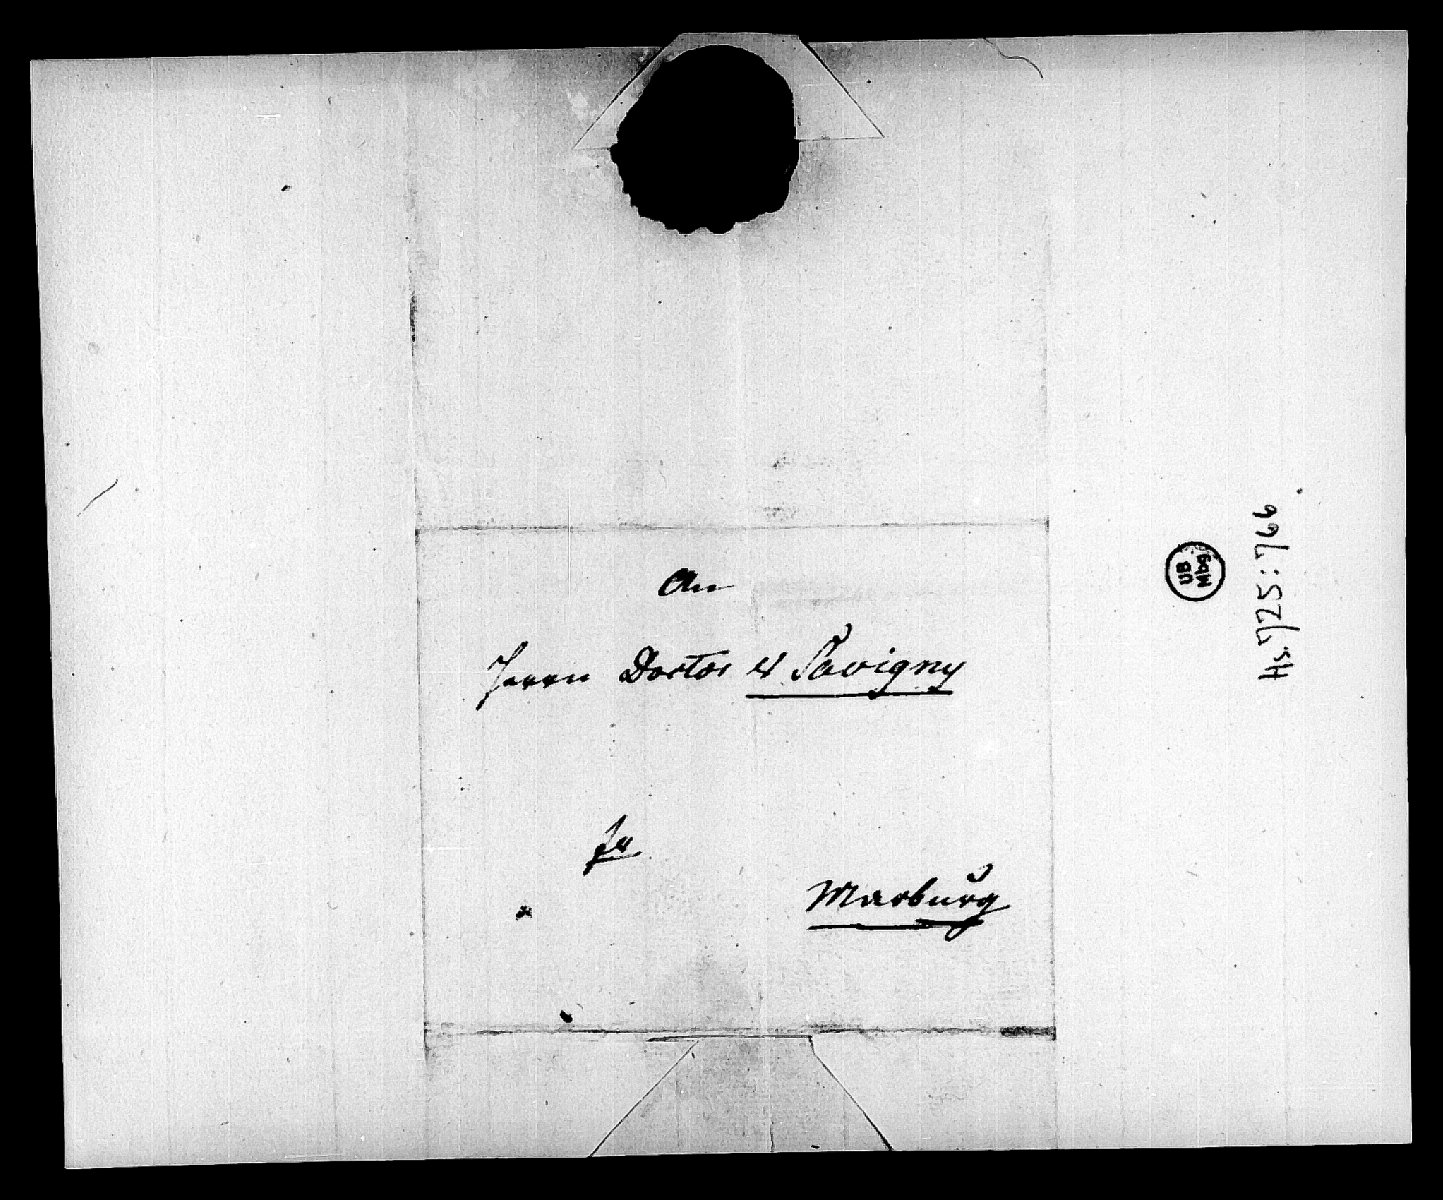 An
Herrn Doctor v Savigny
in
Marburg
UB
Mbg.
Hs. 725:766